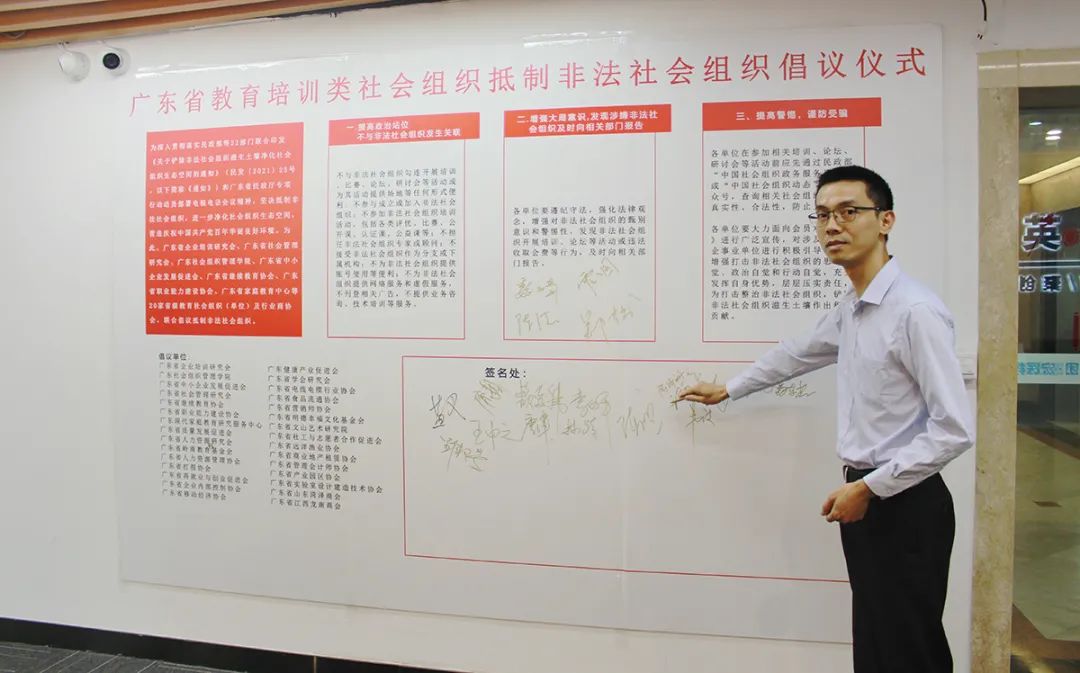 广东省教育培训类社会组织抵制非法社会组织倡议仪式
为深入贯彻落实民政部等22部门联合印发
《关于铲除非法社会组织滋生土壤净化社会
组织生态空间的通知》（民发〔2021〕25号，
以下简称《通知》）和广东省民政厅专项
行动动员部署电视电话会议精神，坚决抵制非
法社会组织，进一步净化社会组织生态空间，
营造庆祝中国共产党百年华诞良好环境。为
此，广东省企业培训研究会、广东省社会管理
研究会、广东社会组织管理学院、广东省中小
企业发展促进会、广东省继续教育协会、广东
省职业能力建设协会、广东省家庭教育中心等
20家省级教育社会组织（单位）及行业商协
会，联合倡议抵制非法社会组织。
一、提高政治站位
不与非法社会组织发生关联
不与非法社会组织勾连开展培训
、比赛、论坛、研讨会等活动或
为其活动提供场地等任何形式便
利。不参与成立或加入非法社会
组织；不参加非法社会组织培训
活动，包括各类评优、比赛、公
开课、认证课、公益课等；不担
任非法社会组织专家或顾问；不
接受非法社会组织作为分支或下
属机构；不为非法社会组织提供
账号使用等便利；不为非法社会
组织提供网络服务和虚假服务，
不刊登相关广告，不提供业务咨
询、技术培训等服务。
二、增强大局意识,发现涉嫌非法社
会组织及时向相关部门报告
各单位要遵纪守法，强化法律观
念，增强对非法社会组织的甄别
意识和警惕性，发现非法社会组
织开展培训、论坛等活动或违法
收取会费等行为，及时向相关部
门报告。
三、提高警惕，谨防受骗
各单位在参加相关培训、论坛、
研讨会等活动前应先通过民政部
“中国社会组织政务服务
或“中国社会组织动态
众号，查询相关社会组
真实性、合法性，防止
各单位要大力面向会员
》进行广泛宣传，对涉及
企事业单位进行积极引导
增强打击非法社会组织的思
觉、政治自觉和行动自觉，充
发挥自身优势，层层压实责任，
为打击整治非法社会组织，铲
非法社会组织滋生土壤作出
贡献。
倡议单位
广东省企业培训研究会
广东社会组织管理学院
广东省中小企业发展促进会
广东省社会管理研究会
广东省继续教育协会
广东省职业能力建设协会
广东现代家庭教育研究服务中心
广东省质量发展促进会
广东省人力资源研究会
广东省岭南教育基金会
广东省人力资源管理协会
广东省打假协会
广东省高就业与创业促进会
广东省企业内部控制协会
广东省移动经济协会
广东省健康产业促进会
广东省学会研究会
广东省电线电缆行业协会
广东省食品流通协会
广东省营销师协会
广东省明德幸福文化基金会
广东省文山艺术研究院
广东省社工与志愿者合作促进会
广东省远洋渔业协会
广东省商业地产租强协会
广东省管理会计师协会
广东省产业园区协会
广东省实验室设计建造技术协会
广东省山东菏泽商会
广东省江西龙南商会
签名处：
英